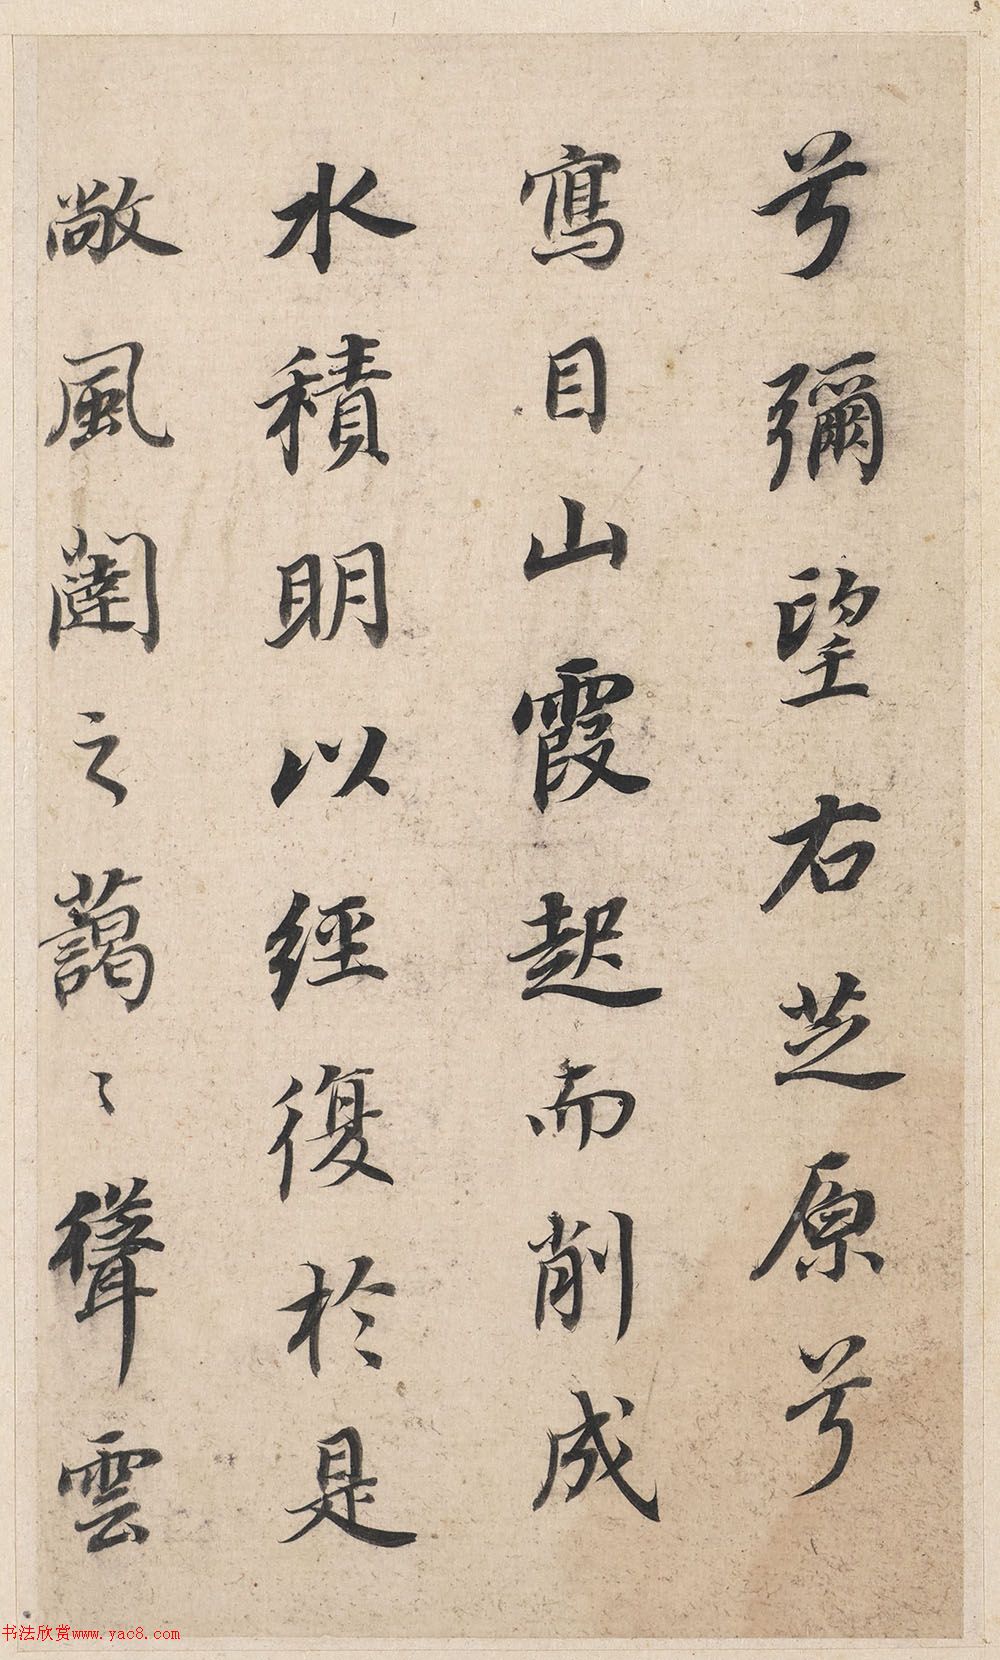 兮彌望右芝原兮
寫目山霞起而削成
水積明以經復於是
敞風闥之藹〻聳雲
书法欣赏www.yac8.com